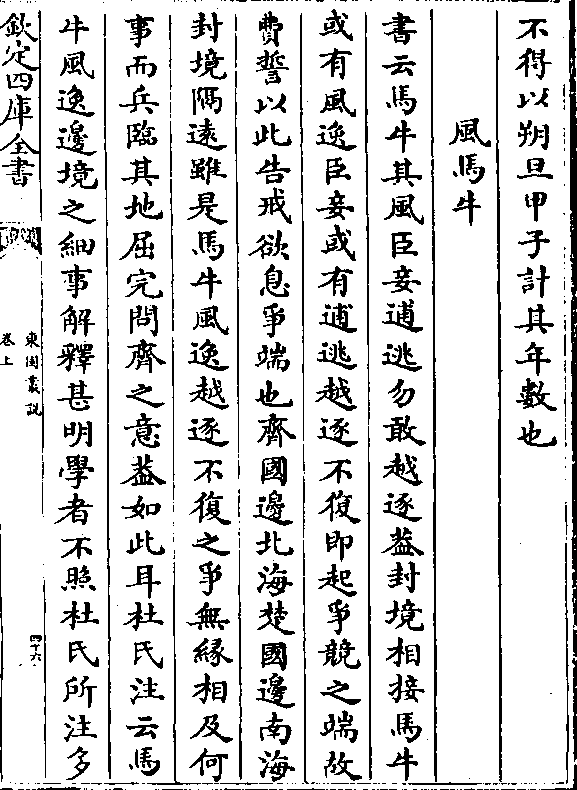 不得以朔旦甲子計其年數也
風馬牛
書云馬牛其風臣妾逋逃勿敢越逐葢封境相接馬牛
或有風逸臣妾或有逋逃越逐不復即起爭競之端故
費誓以此告戒欲息爭端也齊國邊北海楚國邊南海
封境隔遠雖是馬牛風逸越逐不復之爭無緣相及何
事而兵臨其地屈完問齊之意葢如此耳杜氏注云馬
牛風逸邊境之細事解釋甚明學者不照杜氏所注多
欽定四庫全書
東園叢說
卷上
四十六